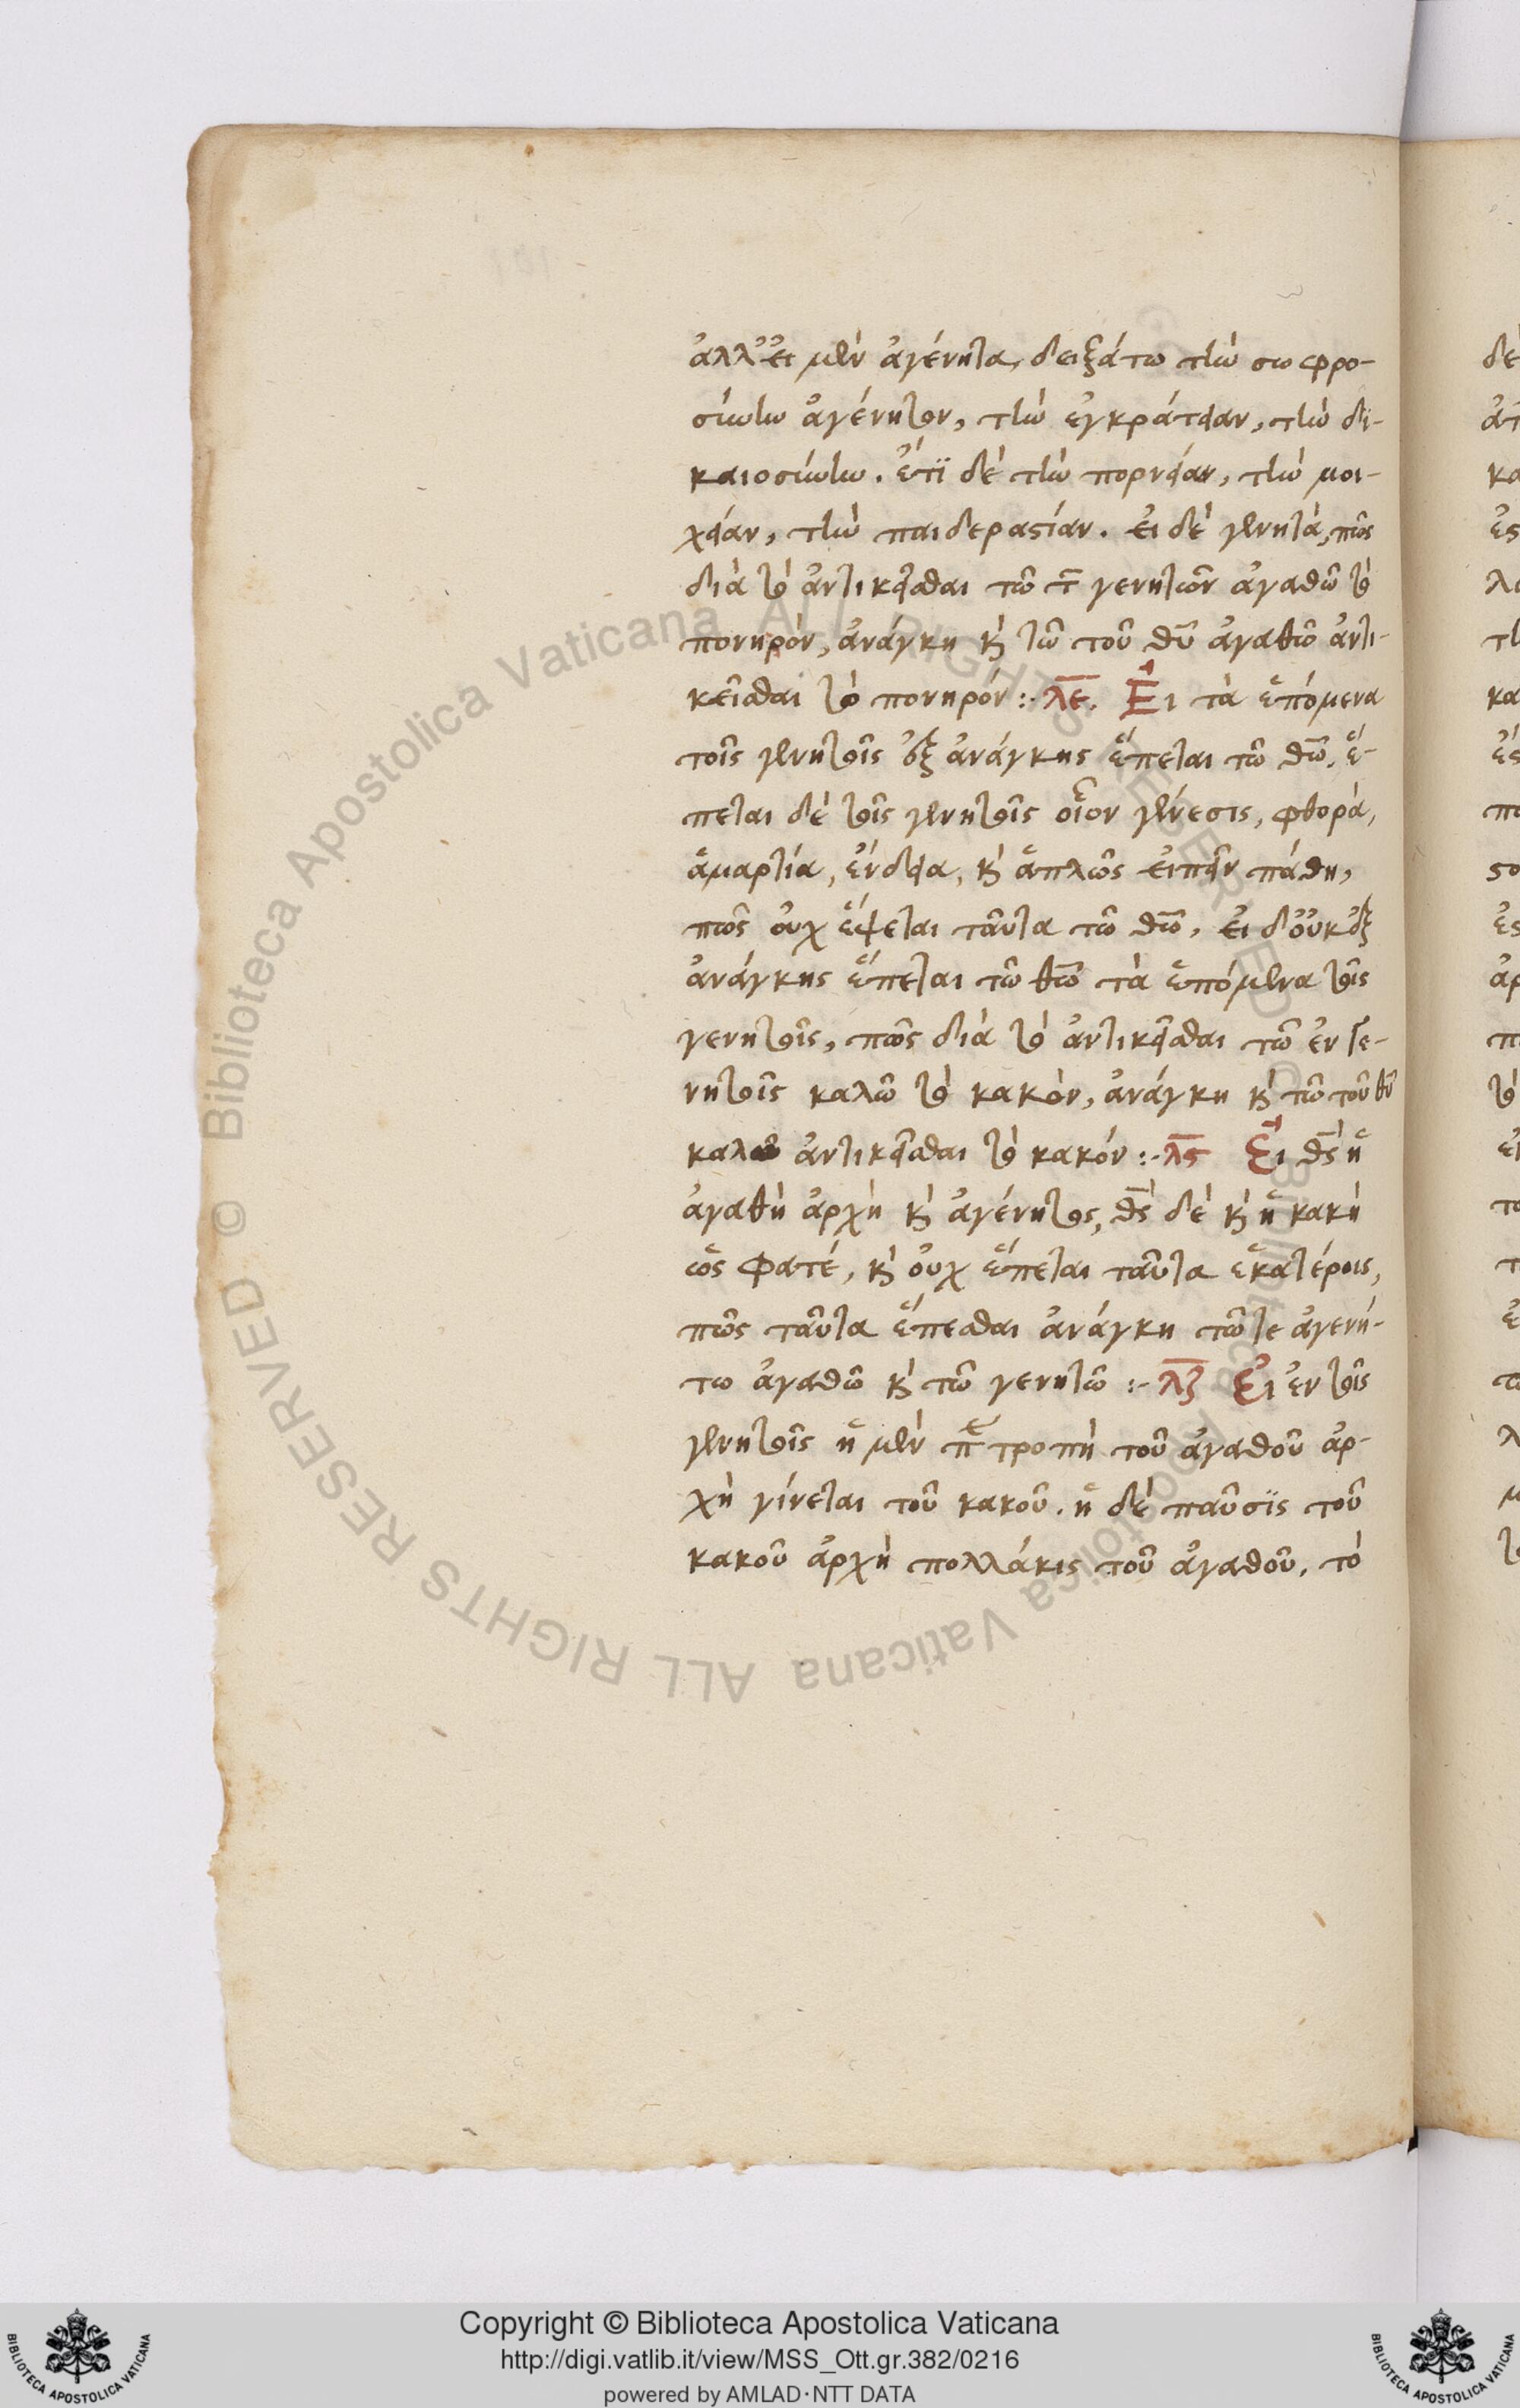 ἀλλ' εἰ μὲν ἀγένητα, δειξάτω τὴν σωφρο-
σύνην ἀγένητον, τὴν ἐγκράτειαν, τὴν δι-
καιοσύνην. ἔτϊ δὲ τὴν πορνείαν, τὴν μοι-
χείαν, τὴν παιδεραστίαν. εἰ δὲ γενητὰ, πῶς
διὰ τὸ ἀντικεῖσθαι τῶ τῶν γενητῶν ἀγαθῶ τὸ
πονηρὸν, ἀνάγκη κὴ τῶ τοῦ θυ ἀγαθῶ ἀντι-
κεῖσθαι τὸ πονηρόν :· λε. Εἰ τὰ ἑπόμενα
τοῖς γενητοῖς ἐξ ἀνάγκης ἕπεται τῶ θω. ἕ-
πεται δὲ τοῖς γενητοῖς οἷον γένεσις, φθορὰ,
ἁμαρτία, ἔνδεια, κὴ ἁπλῶς εἰπεῖν πάθη,
πῶς οὐχ ἕψεται ταῦτα τῶ θω. εἰ δ' οὐκ ἐξ
ἀνάγκης ἕπεται τῶ θω τὰ ἑπόμενα τοῖς
γενητοῖς, πῶς διὰ τὸ ἀντικεῖσθαι τῶ ἐν γε-
νητοῖς καλῶ τὸ κακὸν, ἀνάγκη κὴ τῶ τοῦ θυ
καλῶ ἀντικεῖσθαι τὸ κακόν :· λς Εἰ θς ἡ
ἀγαθὴ ἀρχὴ κὴ ἀγένητος, θς δὲ κὴ ἡ κακὴ
ὥς φατέ, κὴ οὐχ ἕπεται ταῦτα ἑκατέροις,
πῶς ταῦτα ἕπεσθαι ἀνάγκη τῶ τε ἀγενή-
τω ἀγαθῶ κὴ τῶ γενητῶ :· λζ Εἰ ἐν τοῖς
γενητοῖς ἡ μὲν περιτροπὴ τοῦ ἀγαθοῦ ἀρ-
χὴ γίνεται τοῦ κακοῦ. ἡ δὲ παῦσϊς τοῦ
κακοῦ ἀρχὴ πολλάκις τοῦ ἀγαθοῦ. τὸ
Copyright © Biblioteca Apostolica Vaticana
http://digi.vatlib.it/view/MSS_Ott.gr.382/0216
powered by AMLAD·NTT DATA